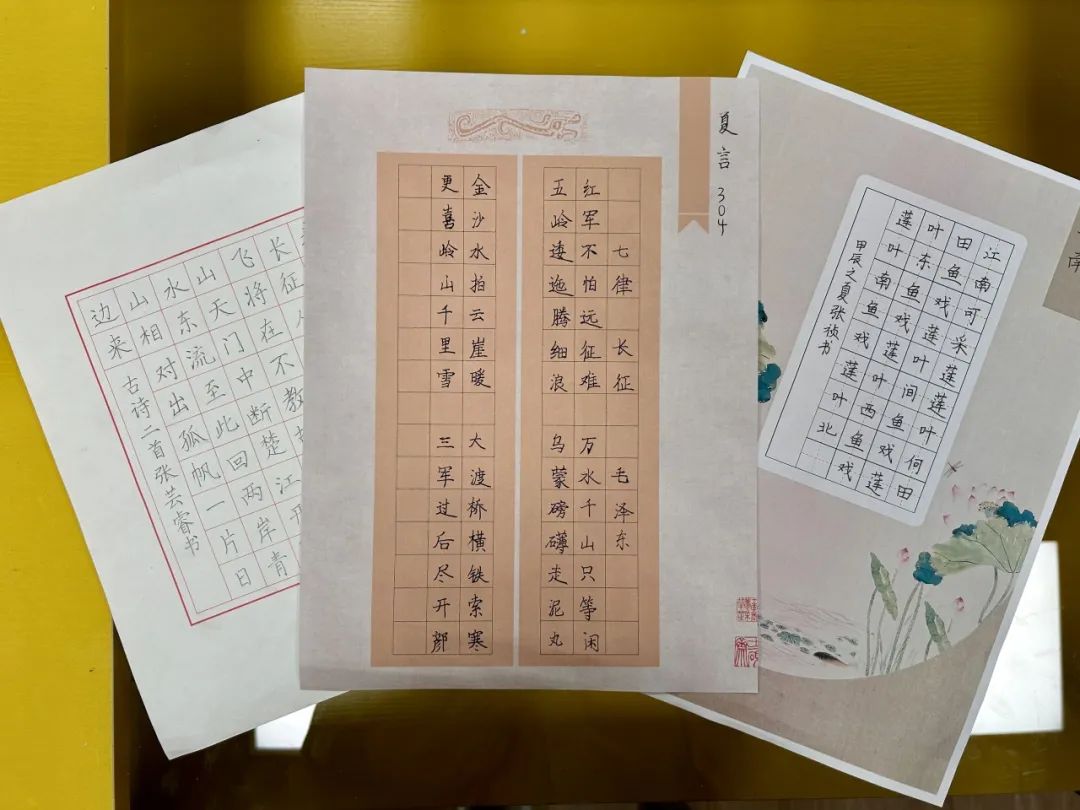 夏言 304
七律 长征 毛泽东
红军不怕远征难 万水千山只等闲
五岭逶迤腾细浪 乌蒙磅礴走泥丸
金沙水拍云崖暖 大渡桥横铁索寒
更喜岭山千里雪 三军过后尽开颜
江南可采莲莲叶何田
田鱼戏莲叶间鱼戏莲
叶东鱼戏莲叶西鱼戏
莲叶南鱼戏莲叶北
甲辰之夏张祯书
长征
飞将在不教
山天门中断楚江
水东流至此回两岸青
山相对出孤帆一片日
边来
古诗二首张芸睿书